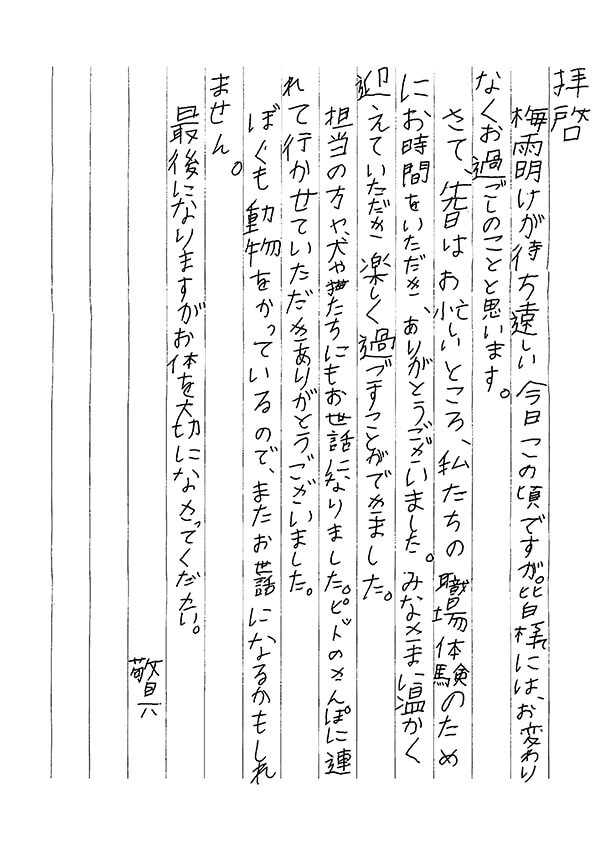 拝啓
梅雨明けが待ち遠しい今日この頃ですが。皆様には、お変わり
なくお過ごしのことと思います。
さて、先日はお忙しいところ、私たちの職場体験のため
にお時間をいただき、ありがとうございました。みなさまに温かく
迎えていただき楽しく過ごすことができました。
担当の方や、犬や猫たちにもお世話になりました。ピードのさんぽに連
れて行かせていただきありがとうございました。
ぼくも動物をかっているので、またお世話になるかもしれ
ません。
最後になりますがお体を大切になさってください。
敬具